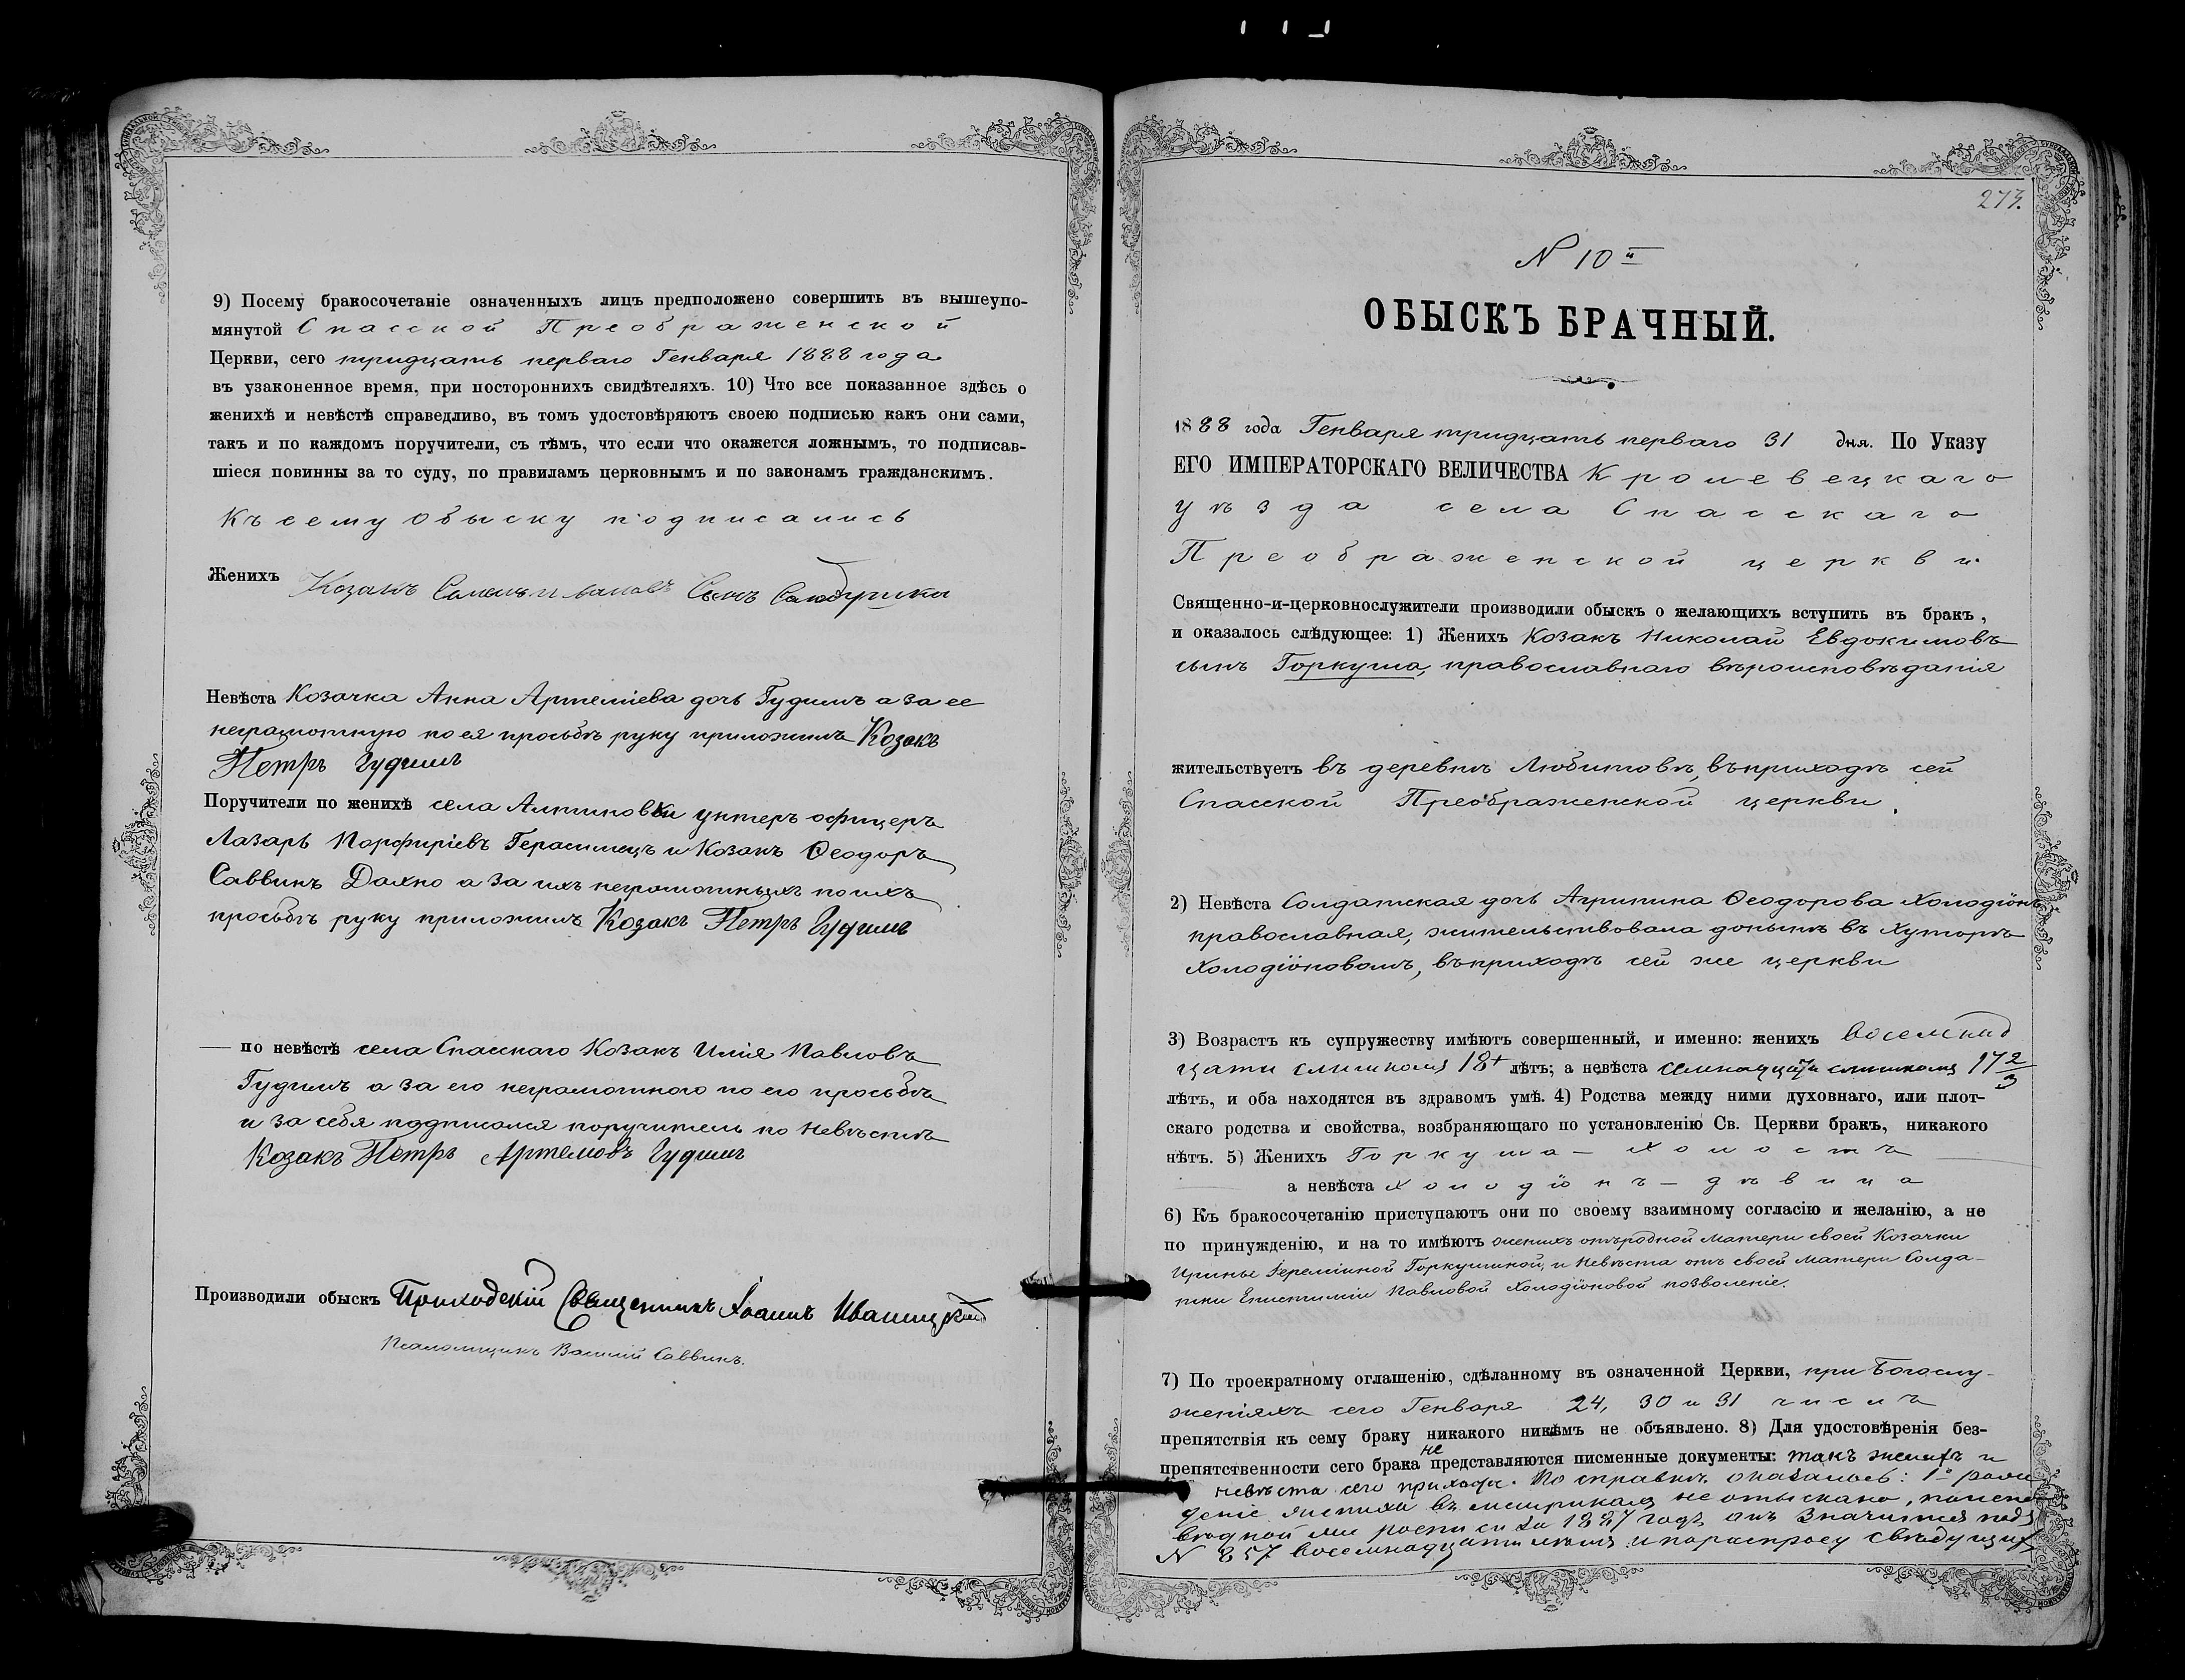 9) Посему бракосочетаніе означенныхъ лицъ предположено совершить въ вышеупо-
мянутой Спасской Преображенской
Церкви, сего тридцать перваго Генваря 1888 года
въ узаконенное время, при постороннихъ свидѣтеляхъ. 10) Что все показанное здѣсь о
женихѣ и невѣстѣ справедливо, въ томъ удостовѣряютъ своею подписью какъ они сами,
такъ и по каждомъ поручители, съ тѣмъ, что если что окажется ложнымъ, то подписав-
шіеся повинны за то суду, по правиламъ церковнымъ и по законамъ гражданскимъ.
Къ сему обыску подписались
Женихъ Козакъ Сынъ
Невѣста Козачка Анна Артеміева дочь Гудимъ а за ее
неграмотную по ея просьбѣ руку приложилъ Козакъ
Петръ Гудимъ
Поручители по женихѣ села Алтиновки унтеръ офицеръ
Лазарь Порфиріевъ Герасимецъ и Козакъ Ѳеодоръ
Саввинъ Дахно а за ихъ неграмотныхъ по ихъ
просьбѣ руку приложилъ Козакъ Петръ Гудимъ
по невѣстѣ села Спасскаго Козакъ Илія Павловъ
Гудимъ а за его неграмотного по его просьбѣ
и за себя подписался поручитель по невѣстѣ
Козакъ Петръ Артемовъ Гудимъ
Производили обыскъ Приходскій Священникъ Іоаннъ Иваницкій
Псаломщикъ Василій Саввинъ.
273.
N 10й
ОБЫСКЪ БРАЧНЫЙ.
1888 года Генваря тридцать перваго 31 дня. По Указу
ЕГО ИМПЕРАТОРСКАГО ВЕЛИЧЕСТВА Кролевецкаго
уѣзда села Спасскаго
Преображенской церкви
Священно-и-церковнослужители производили обыскъ о желающихъ вступить въ бракъ,
и оказалось слѣдующее: 1) Женихъ Козакъ Николай Евдокимовъ
сынъ Горкуша, православнаго вѣроисповѣданія
жительствуетъ въ деревнѣ Любитовѣ, въ приходѣ сей
Спасской Преображенской церкви.
2) Невѣста Солдатская дочь Агрипина Ѳеодорова Холодіонъ
православная, жительствовала донынѣ въ Хуторѣ
Холодіоновомъ, въ приходѣ сей же церкви
3) Возрастъ къ супружеству имѣютъ совершенный, и именно: женихъ восемнад
цати слишкомъ 18+ лѣтъ; а невѣста семнадцати слишкомъ 17 2/3
лѣтъ, и оба находятся въ здравомъ умѣ. 4) Родства между ними духовнаго, или плот-
скаго родства и свойства, возбраняющаго по установленію Св. Церкви бракъ, никакого
нѣтъ. 5) Женихъ Горкуша — холостъ
а невѣста Холодіонъ — дѣвица
6) Къ бракосочетанію приступаютъ они по своему взаимному согласію и желанію, а не
по принужденію, и на то имѣютъ женихъ отъ родной матери своей Козачки
Ирины Іереміиной Горкушиной, и невѣста отъ своей матери Солда-
тки Епистиміи Павловой Холодіоновой позволеніе.
7) По троекратному оглашенію, сдѣланному въ означенной Церкви, при Богослу-
женіяхъ сего Генваря 24, 30 и 31 числъ
препятствія къ сему браку никакого никѣмъ не объявлено. 8) Для удостовѣренія без-
препятственности сего брака не представляются писменные документы: такъ женихъ и
невѣста сего прихода. По справкѣ оказалось: 1е рож
деніе жениха въ метрикахъ не отыскано, по испо
вѣдной же росписи за 1887 годъ онъ значится подъ
N 857 восемнадцати лѣтъ и по распросу свѣдущихъ